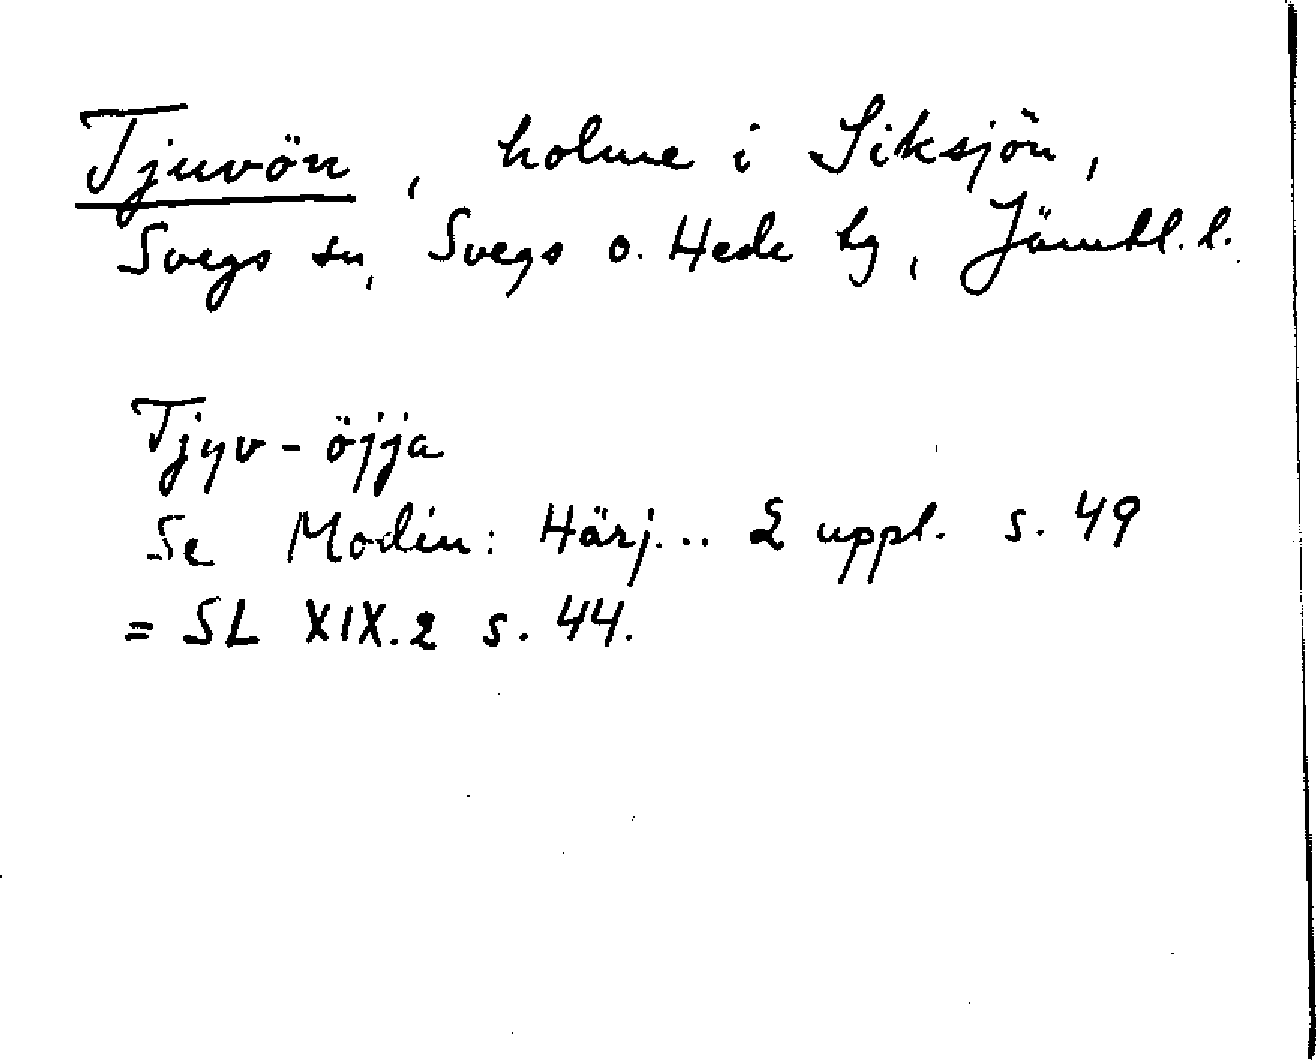 Tjuvön, holme i Siksjön,
Svegs sn, Svegs o. Hede tg, Jämtl. l.
Tjyv-öjja
Se Modin: Härj... 2 uppl. s. 49
= SL XIX.2 s. 44.